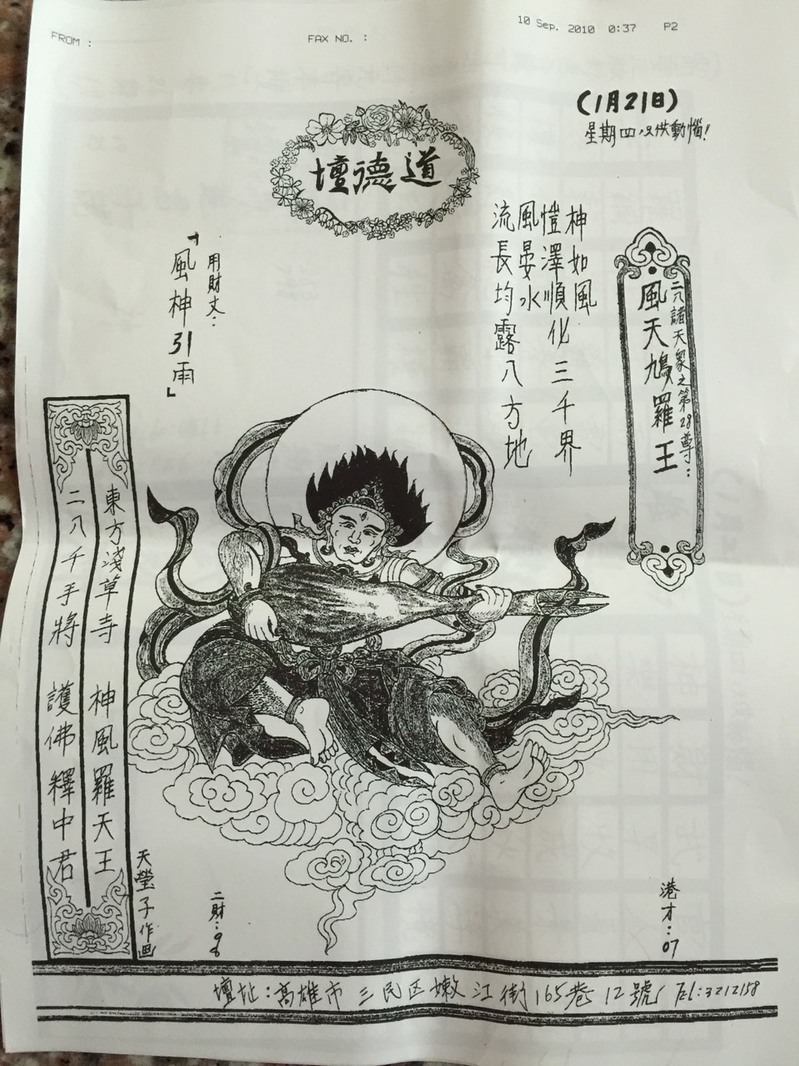 FROM :
FAX NO. :
10 Sep. 2010 0:37 P2
(1月21日)
星期四没供動腦!
道德壇
二八諸天眾之第28尊:
風天鳩羅王
神如風
愷澤順化三千界
風晏水
流長均露八方地
用財文:
「風神引雨」
東方淺草寺 神風羅天王
二八千手將 護佛釋中君
天瑩子作画
二財:98
港才:07
壇址:高雄市三民区嫩江街165巷12號 Tel:3212158